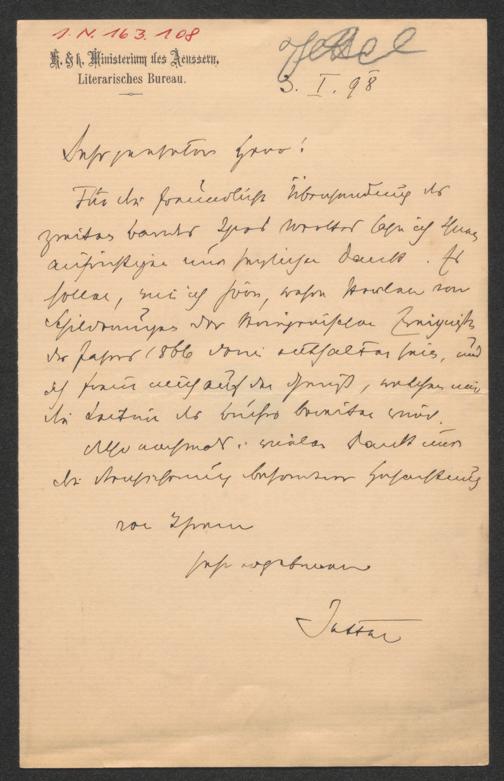 I.N. 163.108
K. & k. Ministerium des Aeussern.
Literarisches Bureau.
3. I. 98
Sehr geehrter Herr!
Für die freundliche Übersendung des
zweiten Bandes Ihres Werkes sage ich Ihnen
aufrichtigen und herzlichen Dank. Es
sollen, wie ich höre, wahre Perlen von
Schilderungen der kriegerischen Ereignisse
des Jahres 1866 darin enthalten sein, und
ich freue mich auf den Genuß, welchen mir
die Lectüre des Buches bereiten wird.
Also nochmals: vielen Dank und
die Versicherung besonderer Hochachtung
von Ihrem
sehr ergebenen